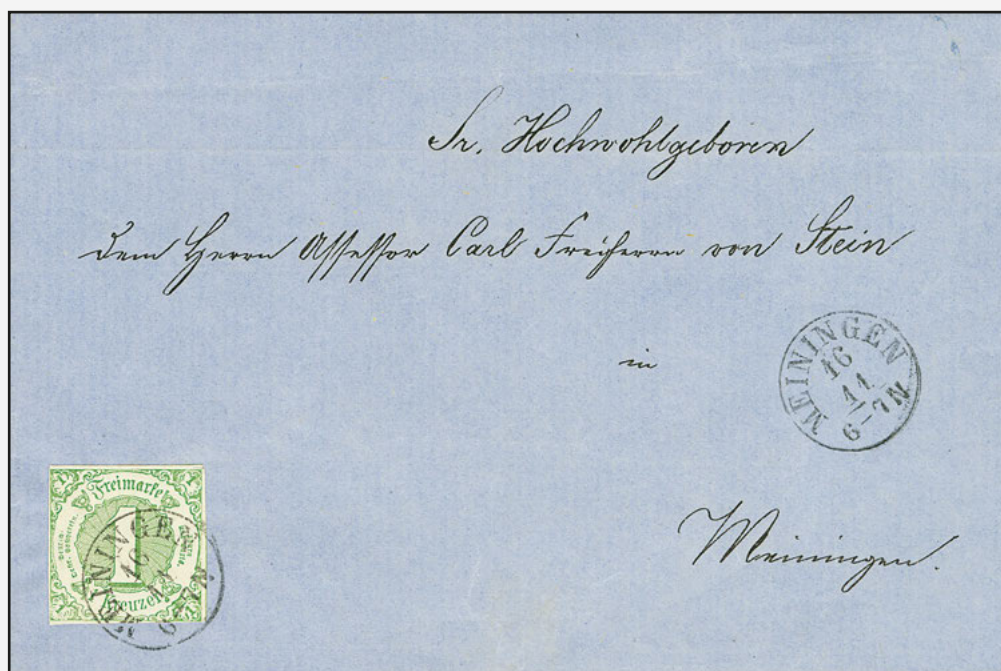 Sr. Hochwohlgeboren
dem Herrn Assessor Carl Freiherrn von Stein
in
MEININGEN
16
11
6-7 N
Meiningen.
1 1
Freimarke
1
Kreuzer
1
MEININGEN
16
11
6-7 N